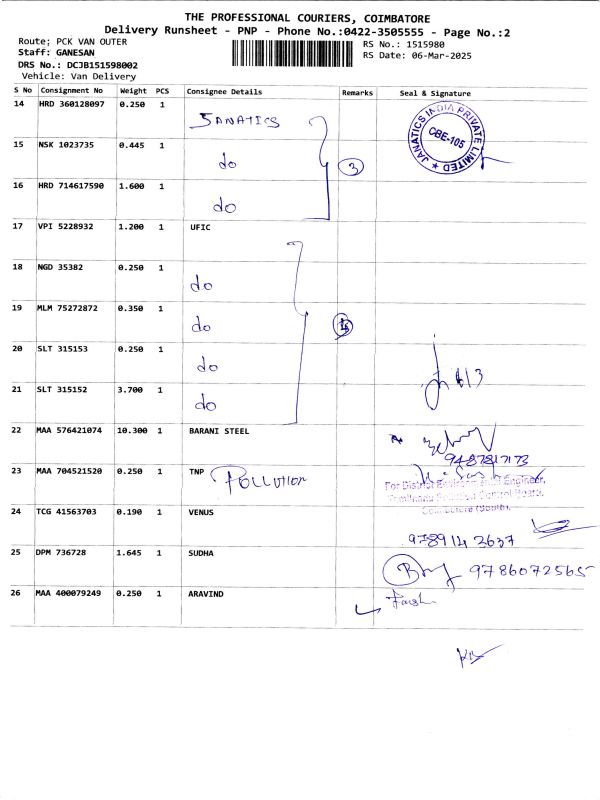 THE PROFESSIONAL COURIERS, COIMBATORE
Delivery Runsheet - PNP - Phone No.:0422-3505555 - Page No.:2
Route; PCK VAN OUTER
Staff: GANESAN
DRS No.: DCJB151598002
Vehicle: Van Delivery
RS No.: 1515980
RS Date: 06-Mar-2025
S No Consignment No Weight PCS Consignee Details Remarks Seal & Signature
14 HRD 360128097 0.250 1 JANATICS
JANATICS INDIA PRIVATE LIMITED ★ CBE-105
15 NSK 1023735 0.445 1 do 3
16 HRD 714617590 1.600 1 do
17 VPI 5228932 1.200 1 UFIC
18 NGD 35382 0.250 1 do
19 MLM 75272872 0.350 1 do
20 SLT 315153 0.250 1 do
21 SLT 315152 3.700 1 do
22 MAA 576421074 10.300 1 BARANI STEEL
23 MAA 704521520 0.250 1 TNP POLLUTION
For District Engineer,
Control Board,
Coimbatore (South).
24 TCG 41563703 0.190 1 VENUS
25 DPM 736728 1.645 1 SUDHA 9786072565
26 MAA 400079249 0.250 1 ARAVIND